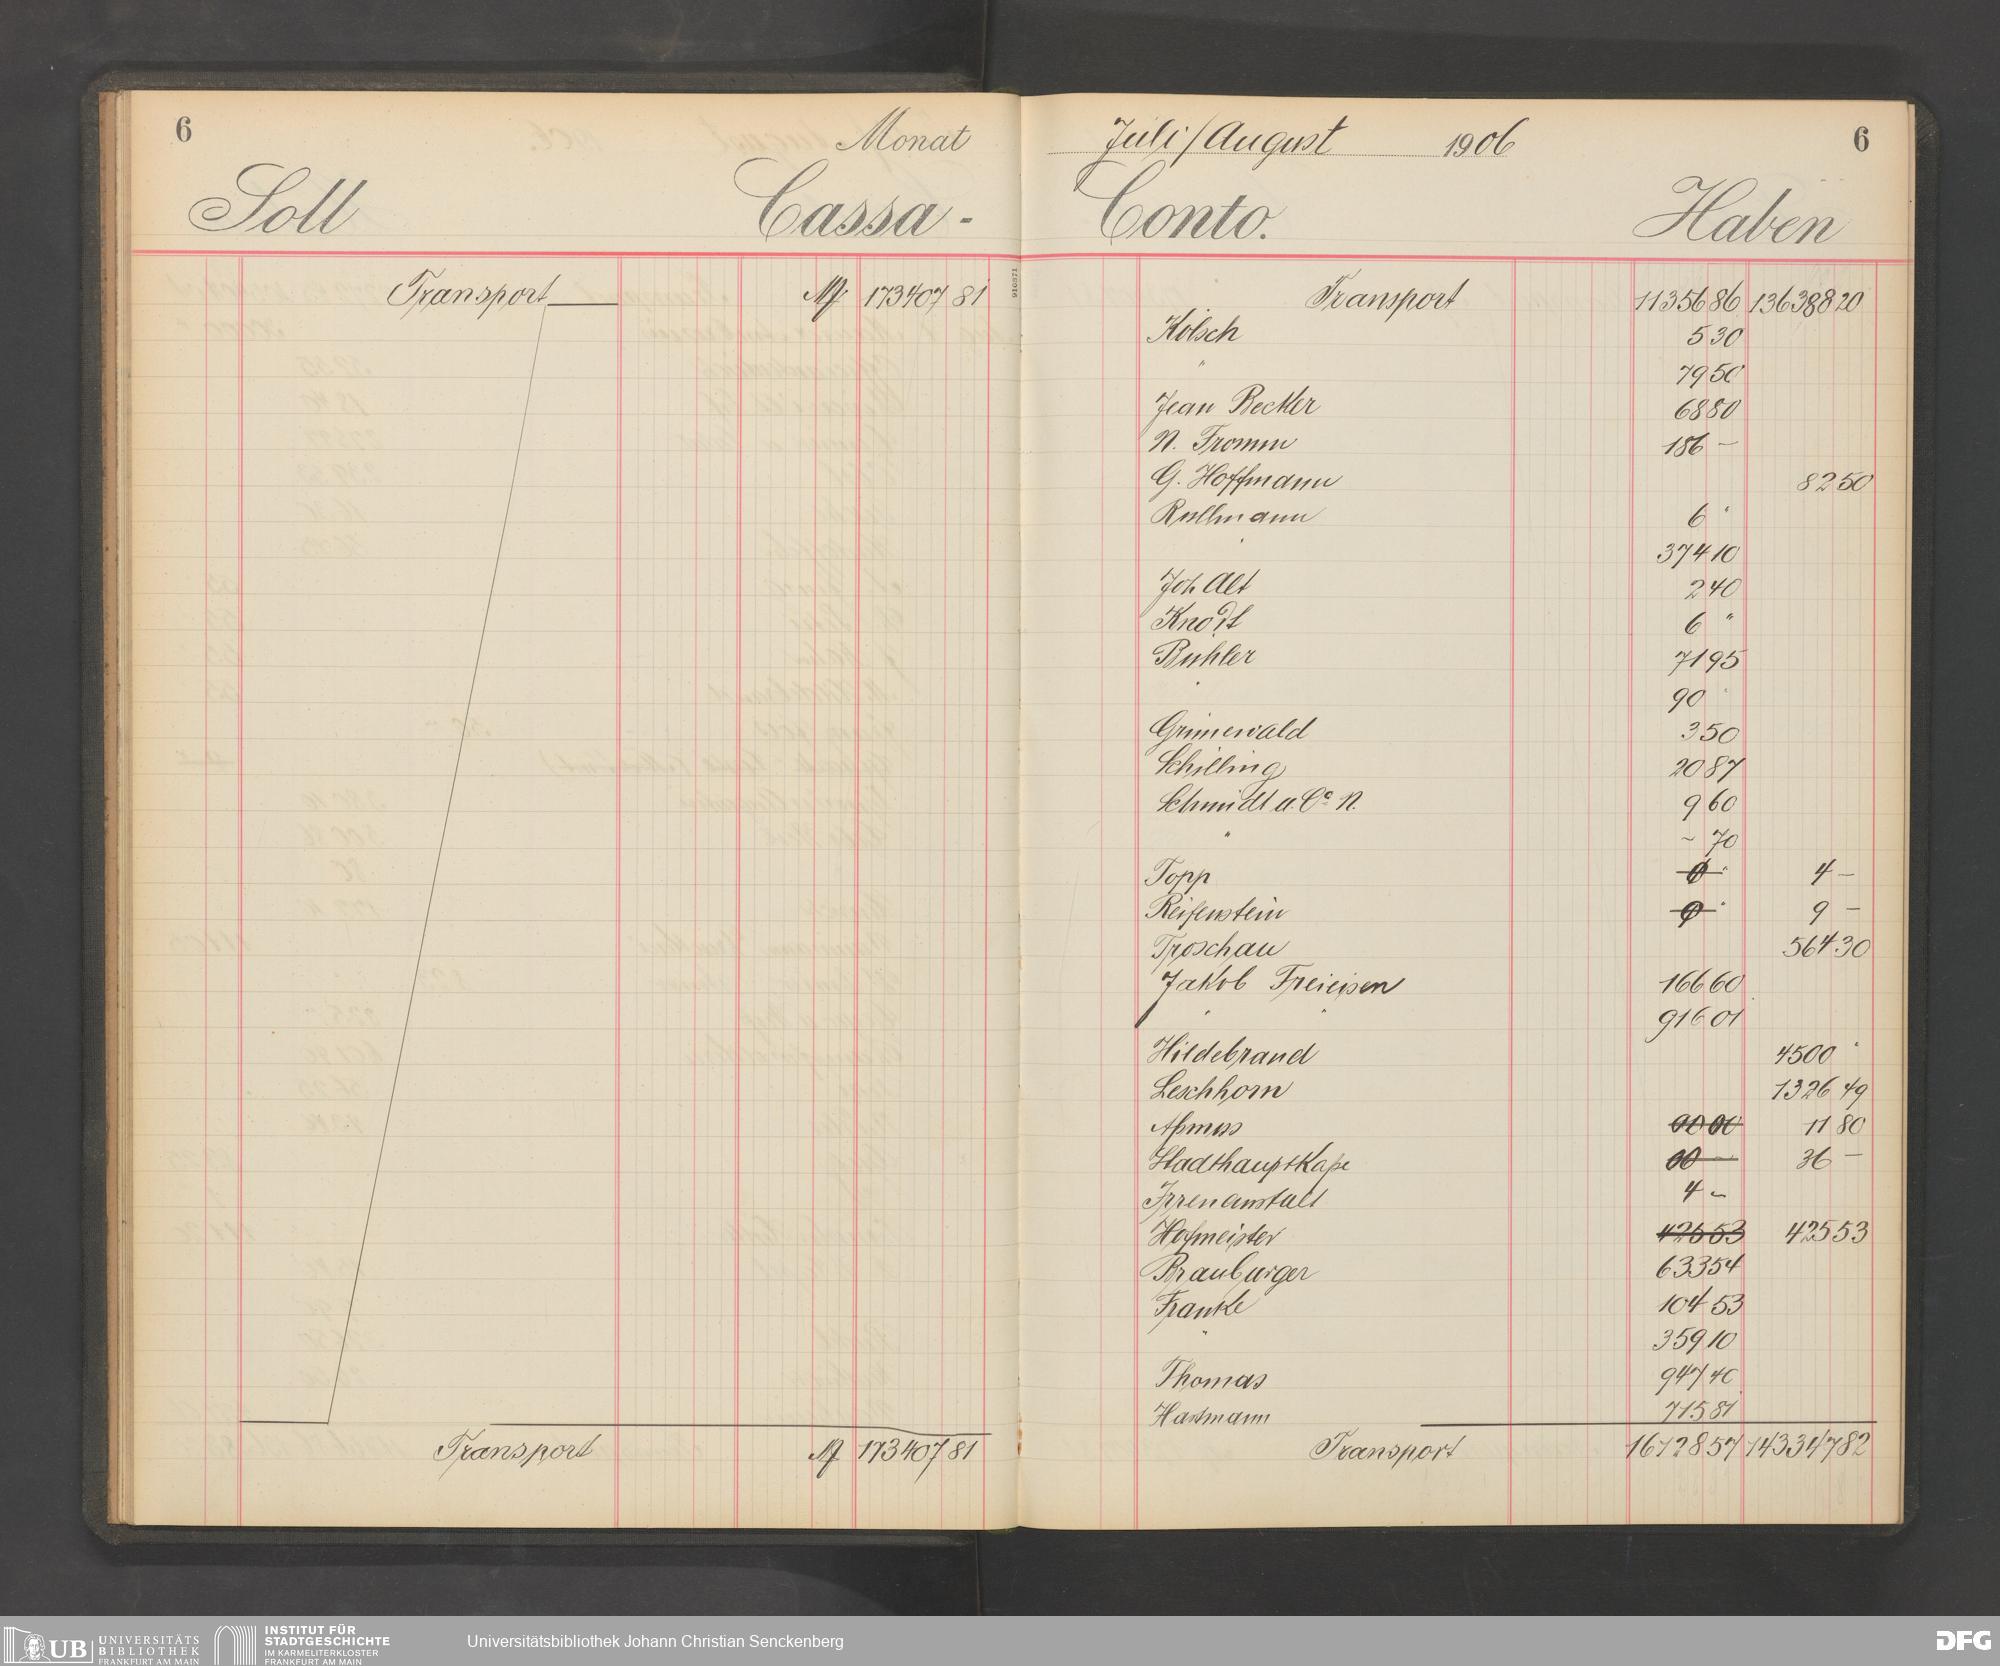 6
Monat
Soll Cassa-
Transport M 173407 81
Transport M 173407 81
Juli/August 1906
6
Conto. Haben
910371
Transport 11356 86 136388 20
Kölsch 5 30
" 79 50
Jean Becker 68 80
N. Fromm 186 –
G. Hoffmann 82 50
Rullmann 6 "
" 374 10
Joh Alt 2 40
Knodt 6 "
Buhler 71 95
" 90 "
Grünewald 3 50
Schilling 20 87
Schmidt u. Co N. 9 60
" ~ 70
Topp 4 –
Reifenstein 9 –
Troschau 564 30
Jakob Freieisen 166 60
" " 916 01
Hildebrand 4500 "
Leschhorn 1326 49
Aßmus 11 80
Stadthauptkaße 36 –
Irrenanstalt 4 –
Hofmeister 425 53 425 53
Brauburger 633 54
Franke 104 53
" 359 10
Thomas 947 40
Hartmann 715 81
Transport 16128 57 143347 82
UB UNIVERSITÄTS
BIBLIOTHEK
FRANKFURT AM MAIN
INSTITUT FÜR
STADTGESCHICHTE
IM KARMELITERKLOSTER
FRANKFURT AM MAIN
Universitätsbibliothek Johann Christian Senckenberg
DFG